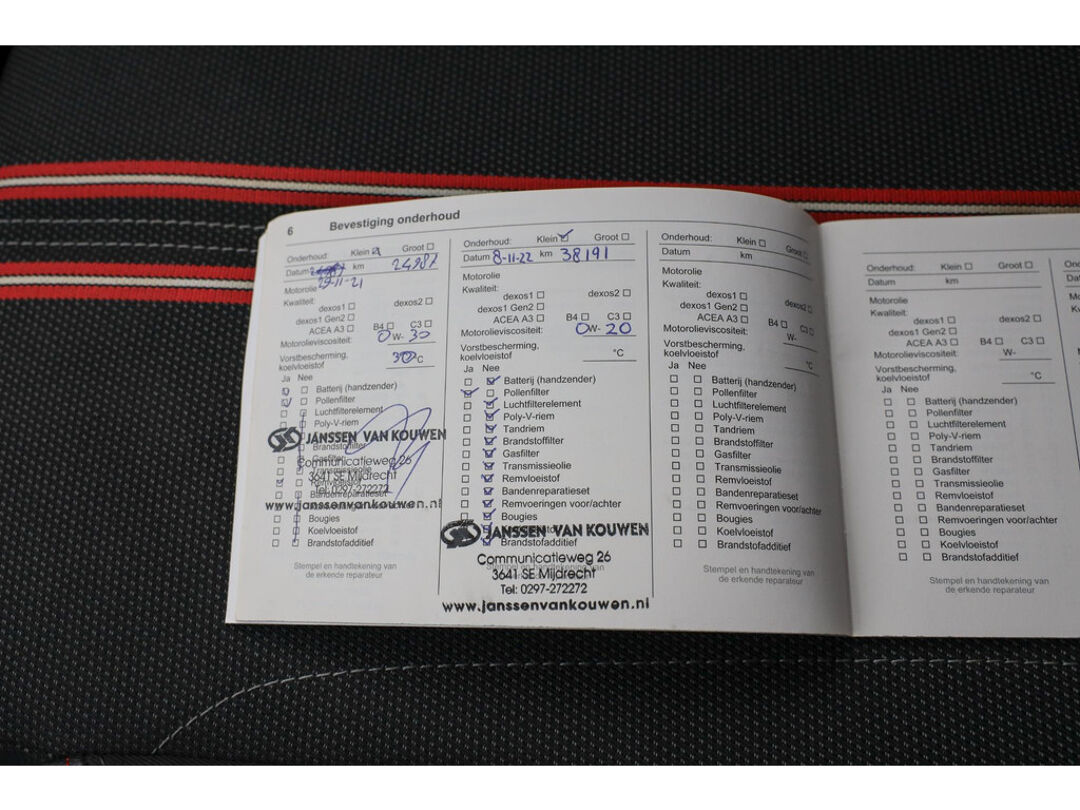 6 Bevestiging onderhoud
Onderhoud: Klein Groot
Datum km 24987
29-11-21
Motorolie
Kwaliteit:
dexos1 dexos2
dexos1 Gen2
ACEA A3 B4 C3
Motorolieviscositeit: 0W-30
Vorstbescherming,
koelvloeistof 30°C
Ja Nee
Batterij (handzender)
Pollenfilter
Luchtfilterelement
Poly-V-riem
JANSSEN VAN KOUWEN
Brandstoffilter
Gasfilter
Communicatieweg 26
Transmissieolie
3641 SE Mijdrecht
Remvloeistof
Tel: 0297-272272
Bandenreparatieset
www.janssenvankouwen.nl
Bougies
Koelvloeistof
Brandstofadditief
Stempel en handtekening van
de erkende reparateur
Onderhoud: Klein Groot
Datum 8-11-22 km 38191
Motorolie
Kwaliteit:
dexos1 dexos2
dexos1 Gen2
ACEA A3 B4 C3
Motorolieviscositeit: 0W-20
Vorstbescherming,
koelvloeistof °C
Ja Nee
Batterij (handzender)
Pollenfilter
Luchtfilterelement
Poly-V-riem
Tandriem
Brandstoffilter
Gasfilter
Transmissieolie
Remvloeistof
Bandenreparatieset
Remvoeringen voor/achter
Bougies
JANSSEN VAN KOUWEN
Brandstofadditief
Communicatieweg 26
3641 SE Mijdrecht
Tel: 0297-272272
www.janssenvankouwen.nl
Onderhoud: Klein Groot
Datum km
Motorolie
Kwaliteit:
dexos1 dexos2
dexos1 Gen2
ACEA A3 B4 C3
Motorolieviscositeit: W-
Vorstbescherming,
koelvloeistof °C
Ja Nee
Batterij (handzender)
Pollenfilter
Luchtfilterelement
Poly-V-riem
Tandriem
Brandstoffilter
Gasfilter
Transmissieolie
Remvloeistof
Bandenreparatieset
Remvoeringen voor/achter
Bougies
Koelvloeistof
Brandstofadditief
Stempel en handtekening van
de erkende reparateur
Onderhoud: Klein Groot
Datum km
Motorolie
Kwaliteit:
dexos1 dexos2
dexos1 Gen2
ACEA A3 B4 C3
Motorolieviscositeit: W-
Vorstbescherming,
koelvloeistof °C
Ja Nee
Batterij (handzender)
Pollenfilter
Luchtfilterelement
Poly-V-riem
Tandriem
Brandstoffilter
Gasfilter
Transmissieolie
Remvloeistof
Bandenreparatieset
Remvoeringen voor/achter
Bougies
Koelvloeistof
Brandstofadditief
Stempel en handtekening van
de erkende reparateur